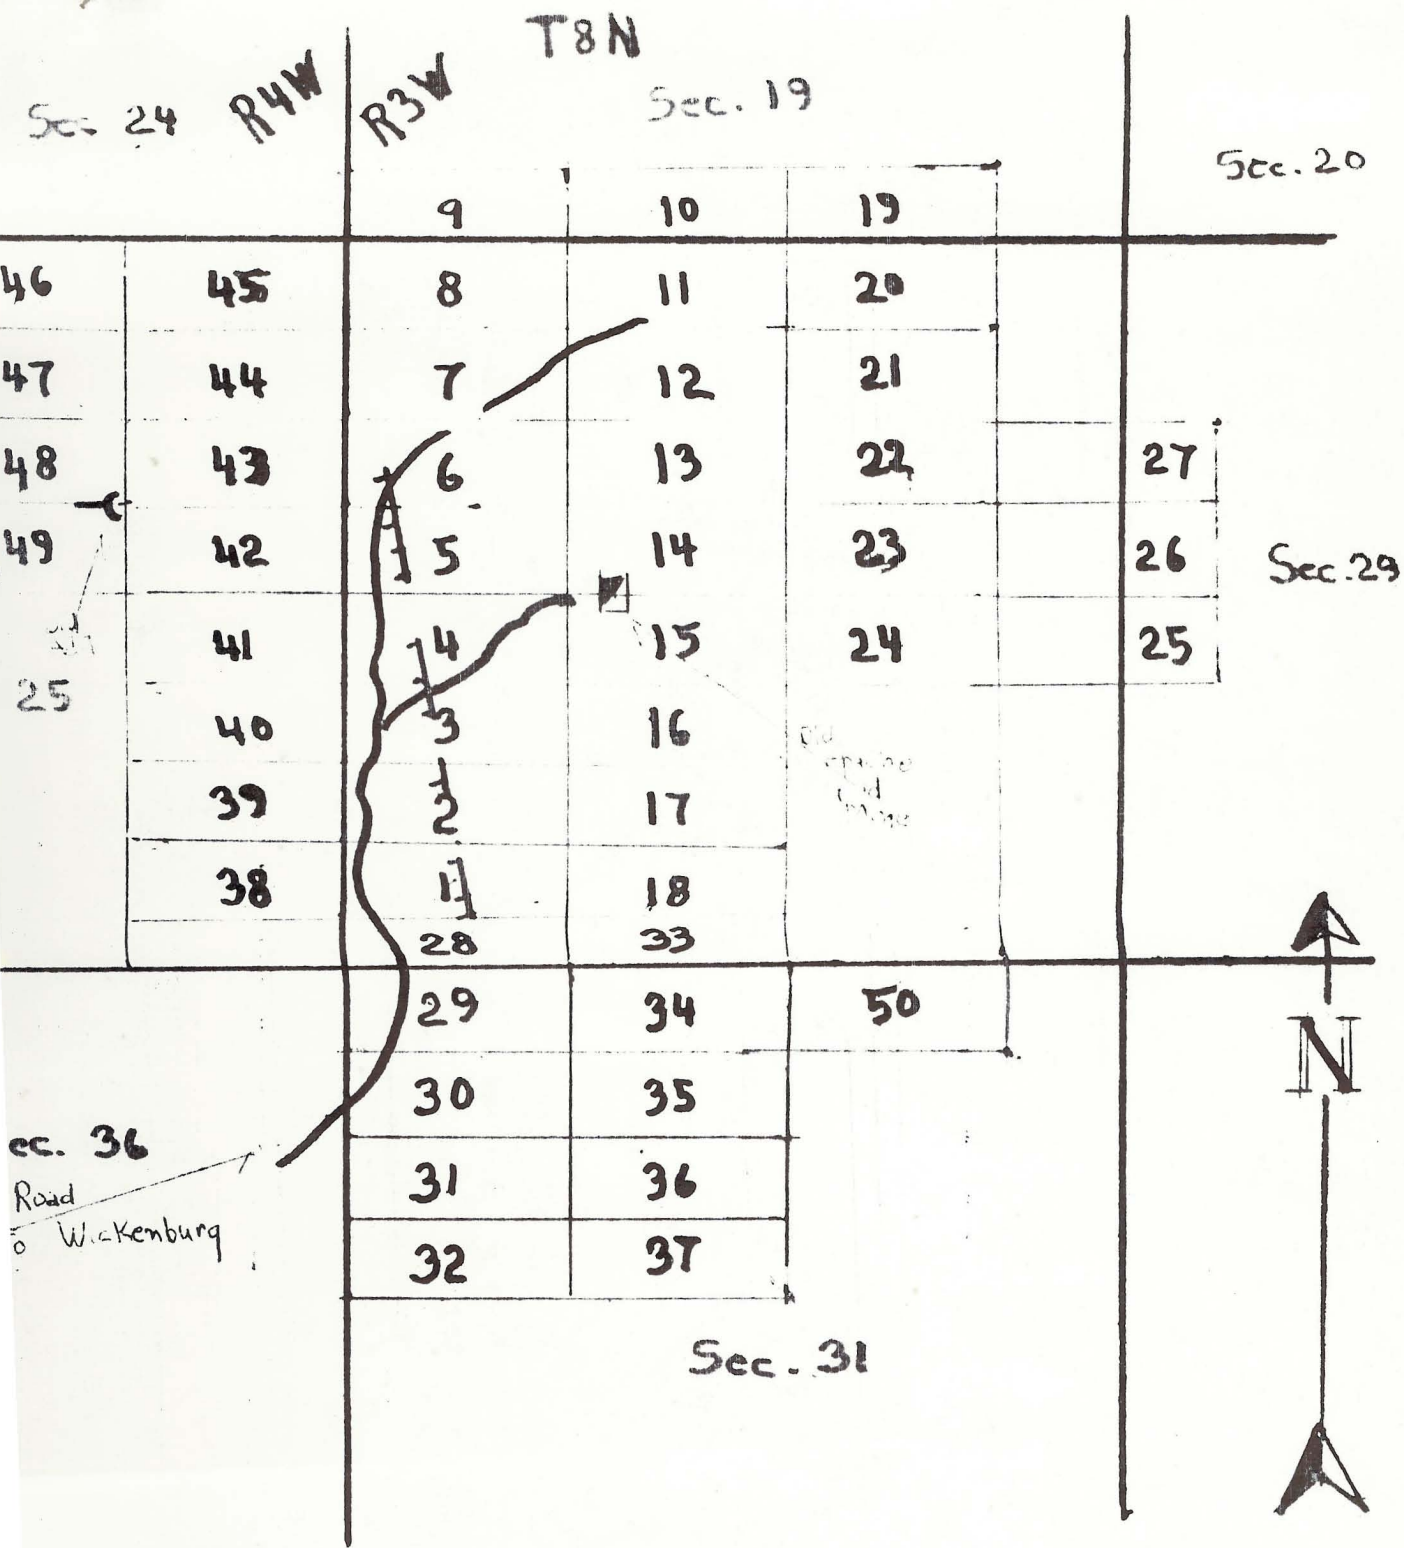 T8N
Sec. 24 R4W R3W Sec. 19
Sec. 20
9 10 19
46 45 8 11 20
47 44 7 12 21
48 43 6 13 22 27
49 42 5 14 23 26 Sec. 29
41 4 15 24 25
25
40 3 16
Old
and
39 2 17
38 1 18
28 33
29 34 50
N
30 35
ec. 36
Road
o Wickenburg
31 36
32 37
Sec. 31